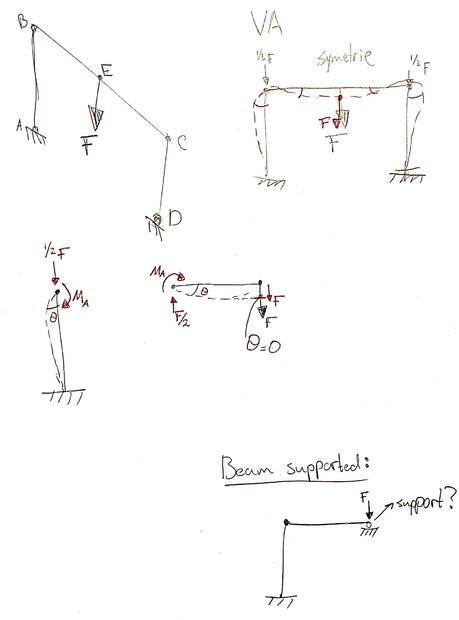 B
E
F
A
C
D
VA
½F
symetrie
½F
F
F
½F
MA
θ
MA
θ
F/2
F
F
θ=0
Beam supported:
F
support?